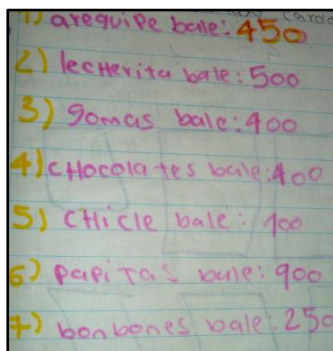 1) arequipe bale: 450
2) lecherita bale: 500
3) gomas bale: 400
4) cHocolates bale: 400
5) cHicle bale: 100
6) papiTas bale: 900
7) bonbones bale: 250